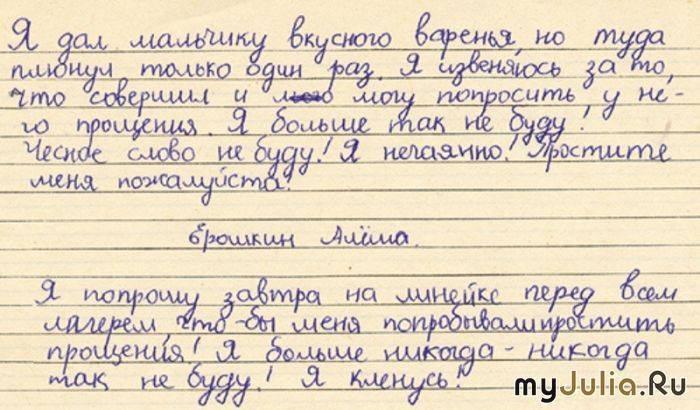 Я дал мальчику вкусного варенья, но туда
плюнул только один раз. Я извеняюсь за то,
что совершил и могу попросить у не-
го прощения. Я больше так не буду!
Чесное слово не буду! Я нечаянно! Простите
меня пожалуйста!
Брошкин Алёша.
Я попрошу завтра на линейке перед всем
лагерем, что-бы меня попробывали простить
прощения! Я больше никогда-никогда
так не буду! Я кленусь!
myJulia.Ru